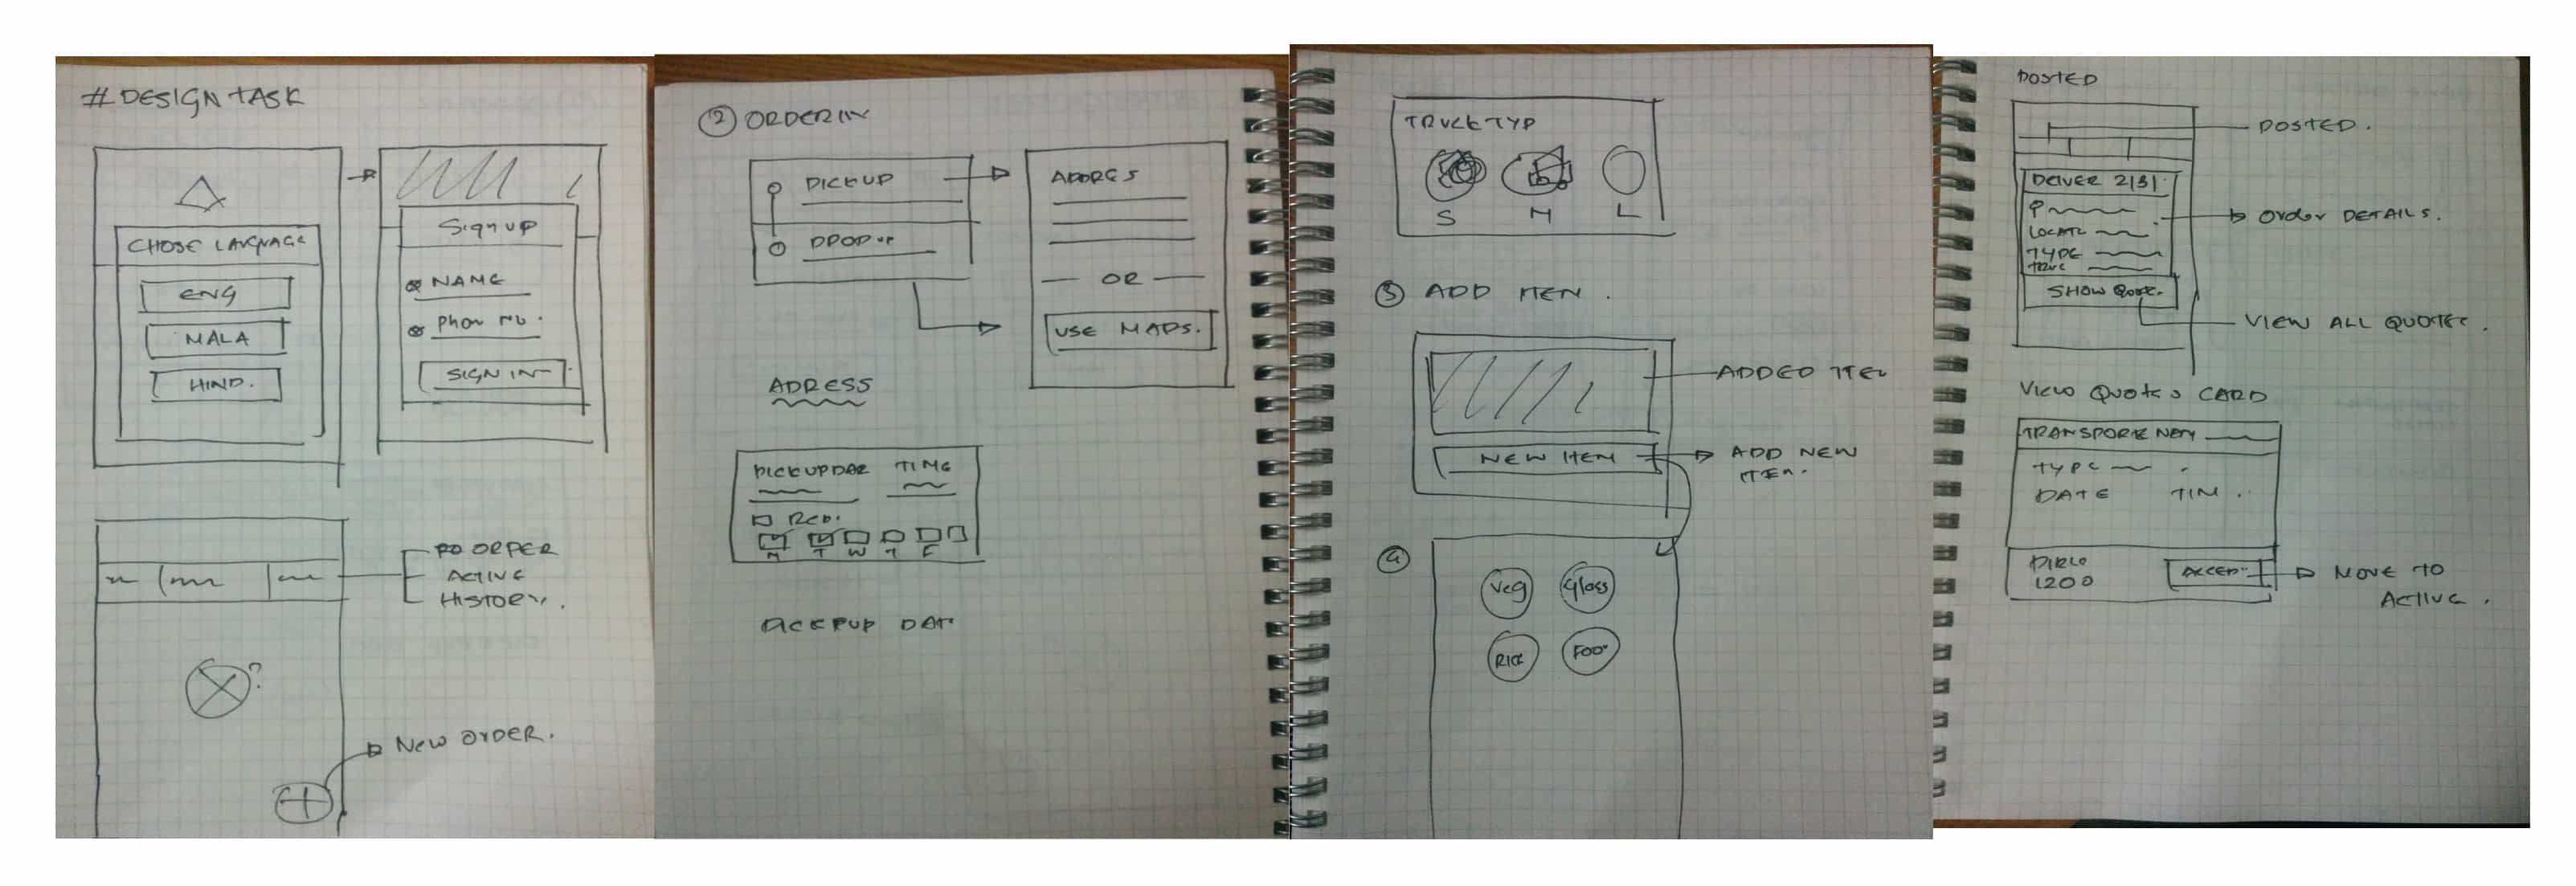 # DESIGN TASK
CHOSE LANGNAGE
ENG
MALA
HIND.
Sign up
NAME
Phon No.
SIGN IN
ORDER
ACTIVE
HISTORY.
?
NEW ORDER.
2 ORDERIN
PICKUP
DROP
ADDRES
OR
USE MAPS.
ADRESS
PICKUP TIME
M T W T F
PICKUP DAT
TRUCK TYP
S M L
3 ADD ITEM.
ADDED ITEM
NEW ITEM
ADD NEW
ITEM.
4
Veg Glass
RICE FOO
POSTED
POSTED.
DELIVER 2131
ORDER DETAILS.
LOCAT
TYPE
TRUC
SHOW
VIEW ALL QUOTES.
VIEW QUOTES CARD
TYPE
DATE TIM.
1200
ACCEP
MOVE TO
ACTIVE.